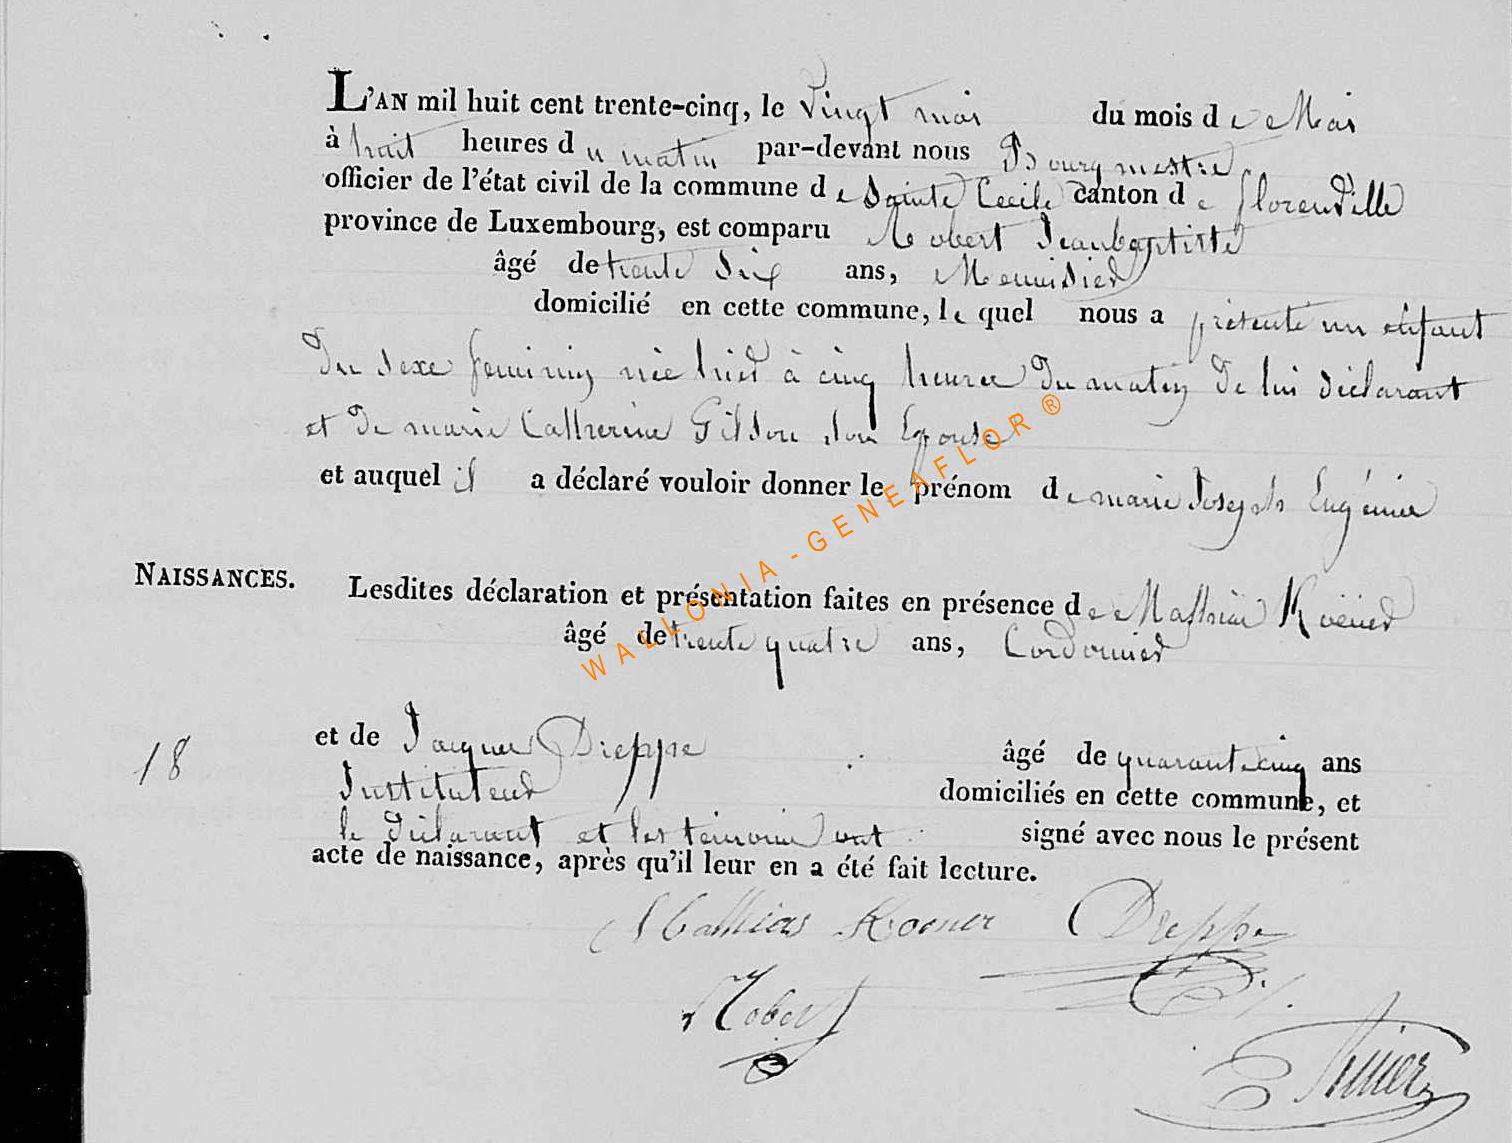 L'AN mil huit cent trente-cinq, le Vingt mai du mois de Mai
à huit heures du matin par-devant nous Bourgmestre
officier de l'état civil de la commune de Sainte Cecile canton de florenville
province de Luxembourg, est comparu Robert Jeanbaptiste
âgé de trente Six ans, Menuisier
domicilié en cette commune, le quel nous a présenté un enfant
du sexe feminin née hier à cinq heures du matin de lui déclarant
et de marie Catherine Gilson son Epouse
et auquel il a déclaré vouloir donner le prénom de marie Joseph Eugénie
NAISSANCES. Lesdites déclaration et présentation faites en présence de Mathieu
âgé de trente quatre ans, Cordonnier
18 et de Jacques Dieppe âgé de quarante cinq ans
Instituteur domiciliés en cette commune, et
le déclarant et les témoins ont signé avec nous le présent
acte de naissance, après qu'il leur en a été fait lecture.
Mathias Koener Dieppe
Robert
WALLONIA - GENEAFLOR ®